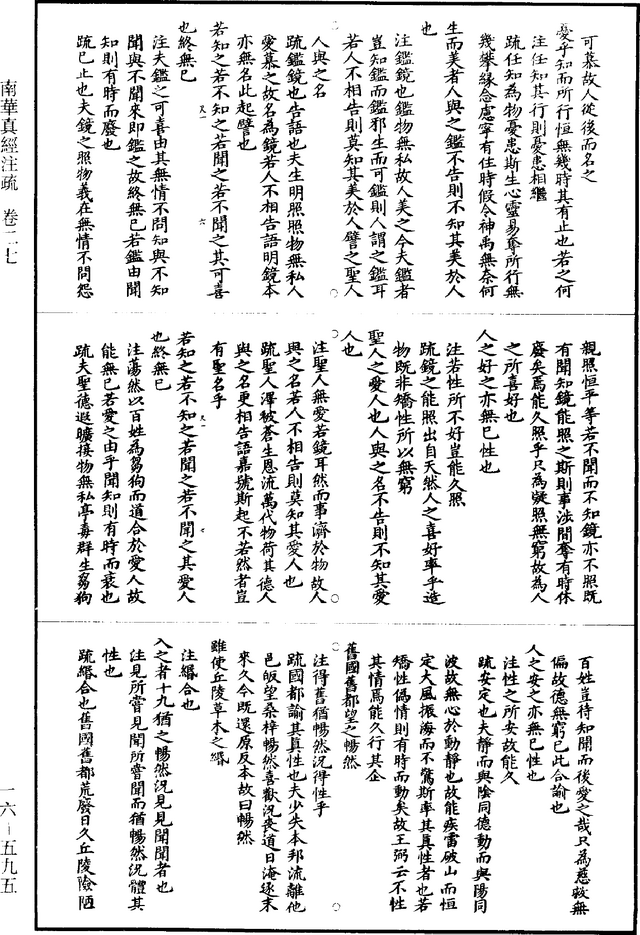 可慕故人從後而名之
憂乎知而所行恒無幾時其有止也若之何
注任知其行則憂患相繼
疏任知為物憂患斯生心靈易奪所行無
幾攀緣念慮寧有住時假令神禹無奈何
生而美者人與之鑑不告則不知其美於人
也
注鑑鏡也鑑物無私故人美之今夫鑑者
豈知鑑而鑑邪生而可鑑則人謂之鑑耳
若人不相告則莫知其美於人譬之聖人
人與之名
疏鑑鏡也告語也夫生明照照物無私人
愛慕之故名為鏡若人不相告語明鏡本
亦無名此起譬也
若知之若不知之若聞之若不聞之其可喜
也終無已
注夫鑑之可喜由其無情不問知與不知
聞與不聞來即鑑之故終無已若鑑由聞
知則有時而廢也
疏已止也夫鏡之照物義在無情不問怨
親照恒平等若不聞而不知鏡亦不照既
有聞知鏡能照之斯則事涉間奪有時休
廢矣焉能久照乎只為凝照無窮故為人
之所喜好也
人之好之亦無已性也
注若性所不好豈能久照
疏鏡之能照出自天然人之喜好率乎造
物既非矯性所以無窮
聖人之愛人也人與之名不告則不知其愛
人也
注聖人無愛若鏡耳然而事濟於物故人
與之名若人不相告則莫知其愛人也
疏聖人澤被蒼生恩流萬代物荷其德人
與之名更相告語嘉號斯起不若然者豈
有聖名乎
若知之若不知之若聞之若不聞之其愛人
也終無已
注蕩然以百姓為芻狗而道合於愛人故
能無已若愛之由乎聞知則有時而衰也
疏夫聖德遐曠接物無私亭毒群生芻狗
百姓豈待知聞而後愛之哉只為慈救無
偏故德無窮已此合諭也
人之安之亦無已性也
注性之所安故能久
疏安定也夫靜而與陰同德動而與陽同
波故無心於動靜也故能疾雷破山而恒
定大風振海而不驚斯率其真性者也若
矯性偽情則有時而動矣故王弼云不性
其情焉能久行其企
舊國舊都望之暢然
注得舊猶暢然況得性乎
疏國都諭其真性也夫少失本邦流離他
邑皈望桑梓暢然喜歡況喪道日淹逐末
來久今既還原反本故曰暢然
雖使丘陵草木之緡
注緡合也
入之者十九猶之暢然況見見聞聞者也
注見所嘗見聞所嘗聞而猶暢然況體其
性也
疏緡合也舊國舊都荒廢日久丘陵險陋
南華真經注疏　卷二七
一六－五九五